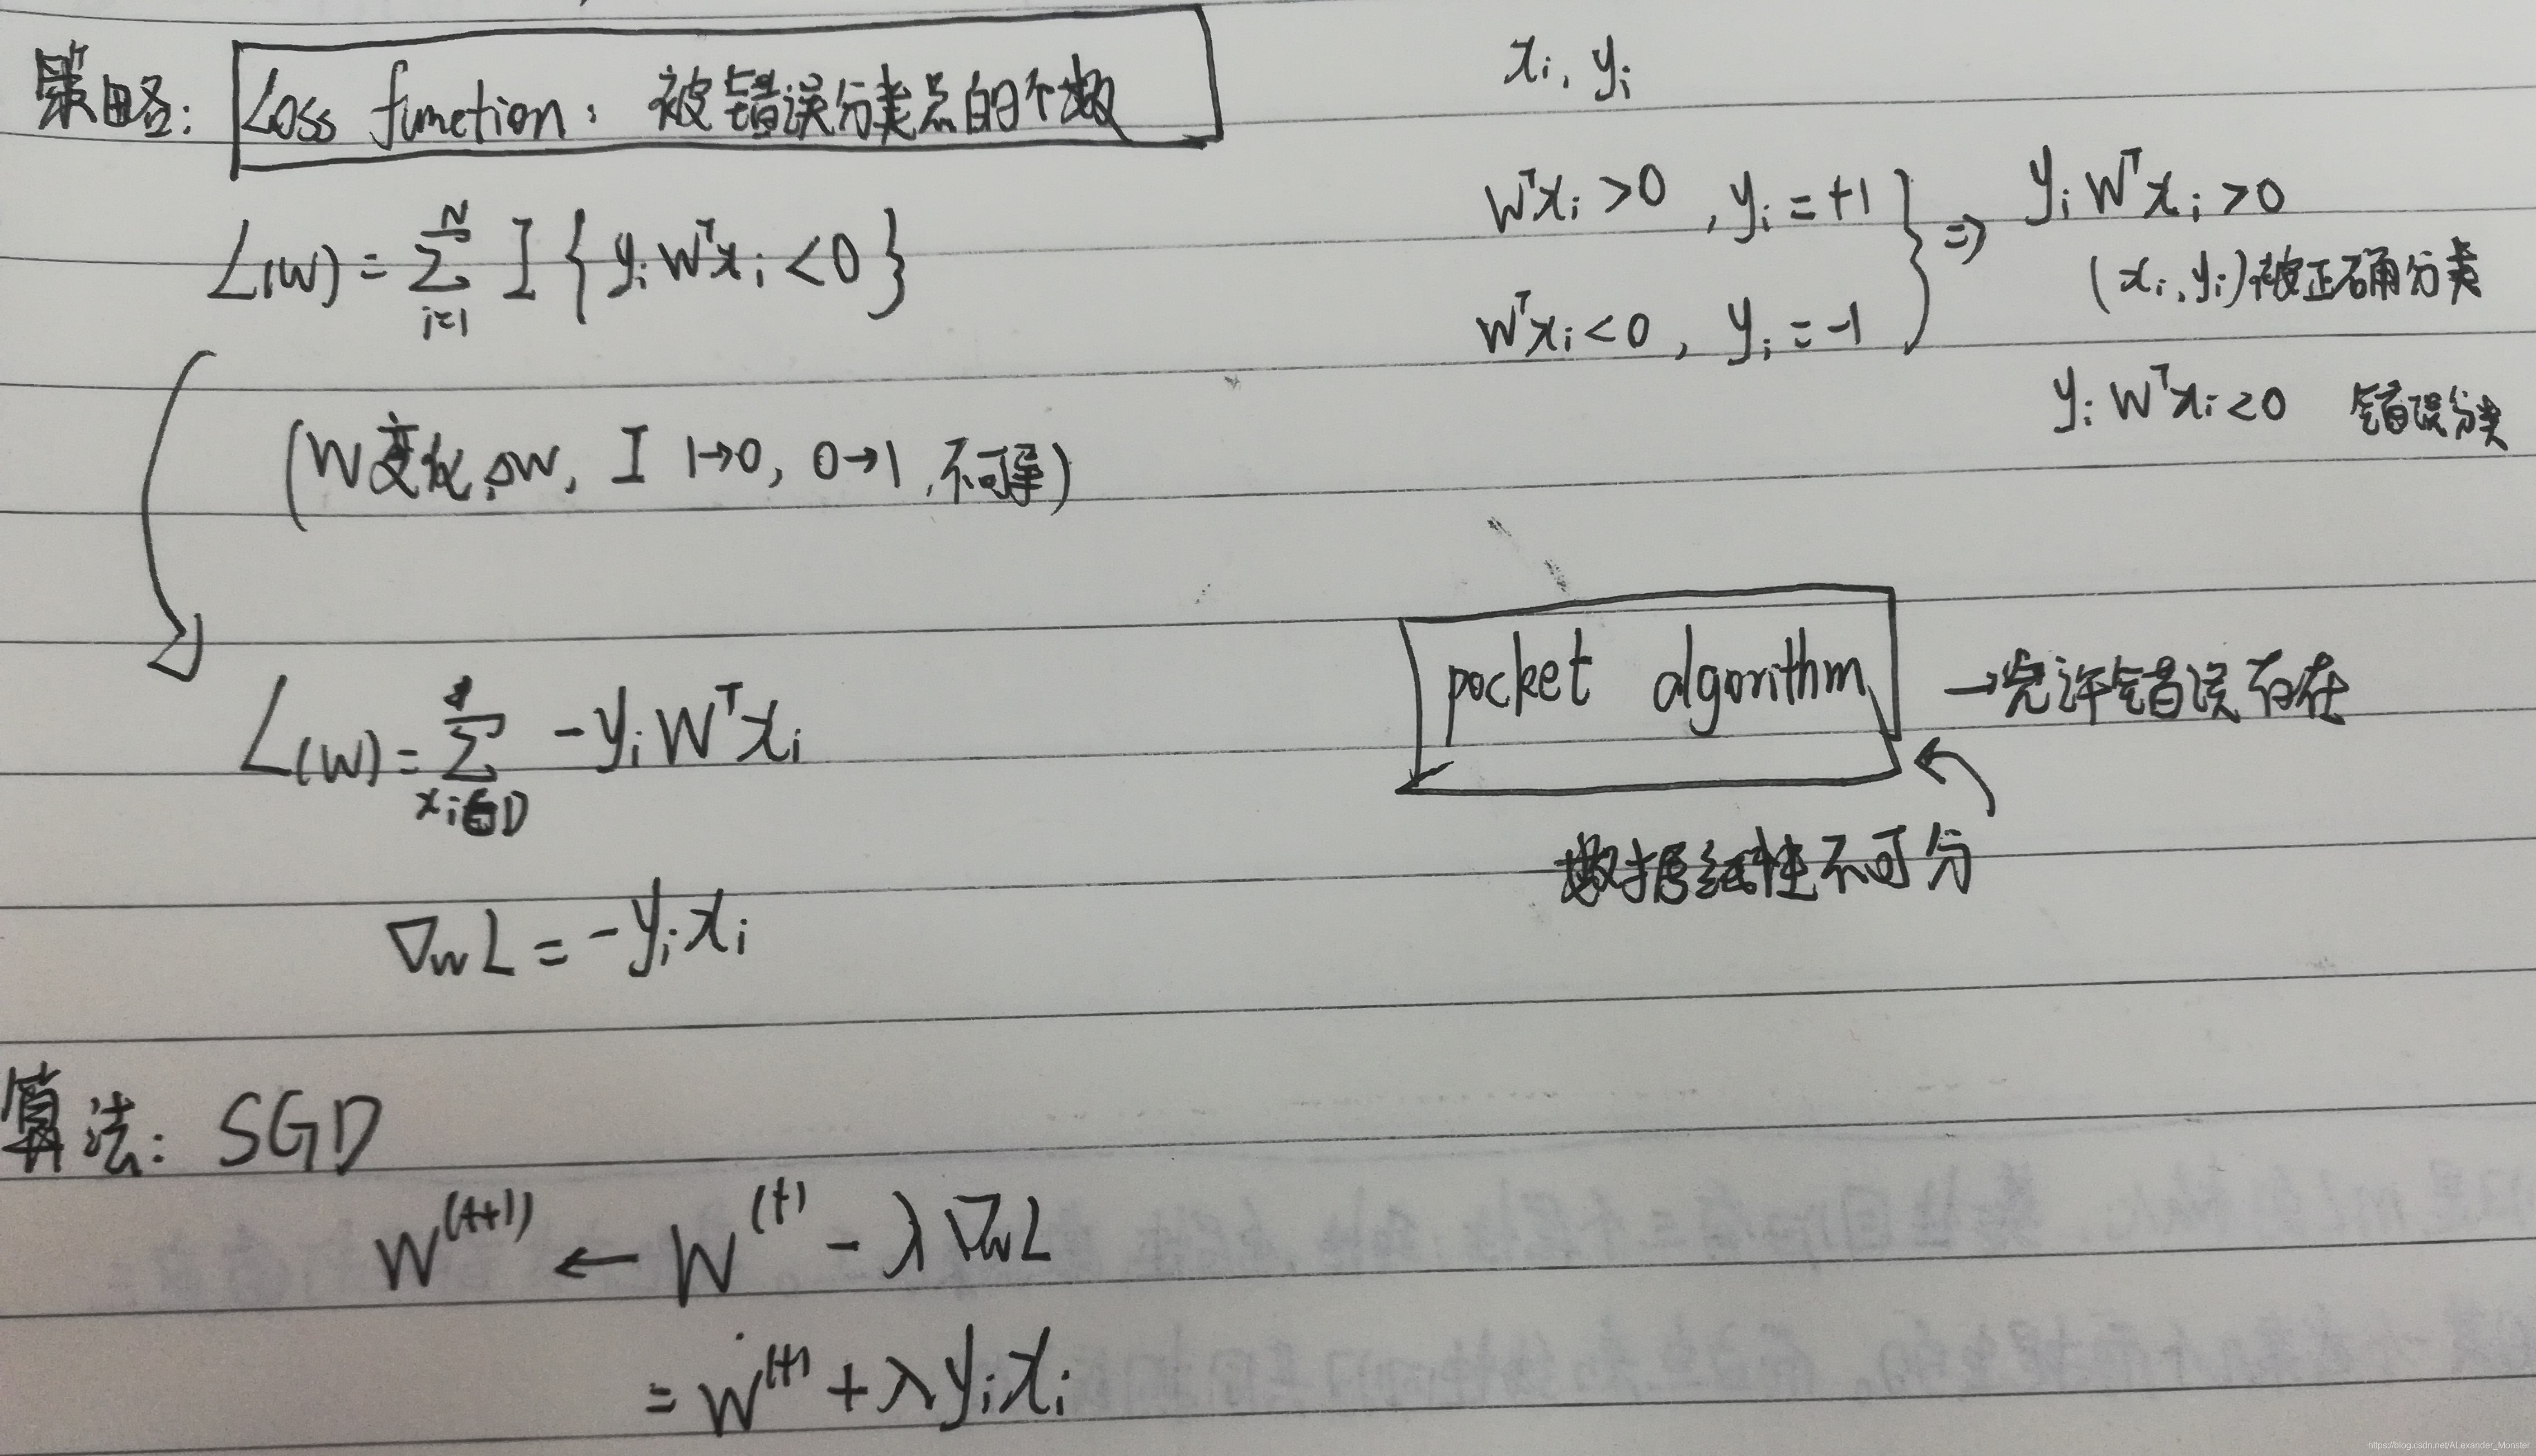 策略: Loss function: 被错误分类点的个数
L(W) = ∑_{i=1}^{N} I { y_i W^T x_i < 0 }
(W变化 ΔW, I 1→0, 0→1, 不可导)
L(W) = ∑_{x_i∈D} -y_i W^T x_i
∇_W L = -y_i x_i
x_i, y_i
W^T x_i > 0, y_i = +1 } ⇒ y_i W^T x_i > 0
(x_i, y_i)被正确分类
W^T x_i < 0, y_i = -1
y_i W^T x_i < 0 错误分类
pocket algorithm →允许错误存在
数据线性不可分
算法: SGD
W^{(t+1)} ← W^{(t)} - λ ∇_W L
= W^{(t)} + λ y_i x_i
https://blog.csdn.net/ALexander_Monster